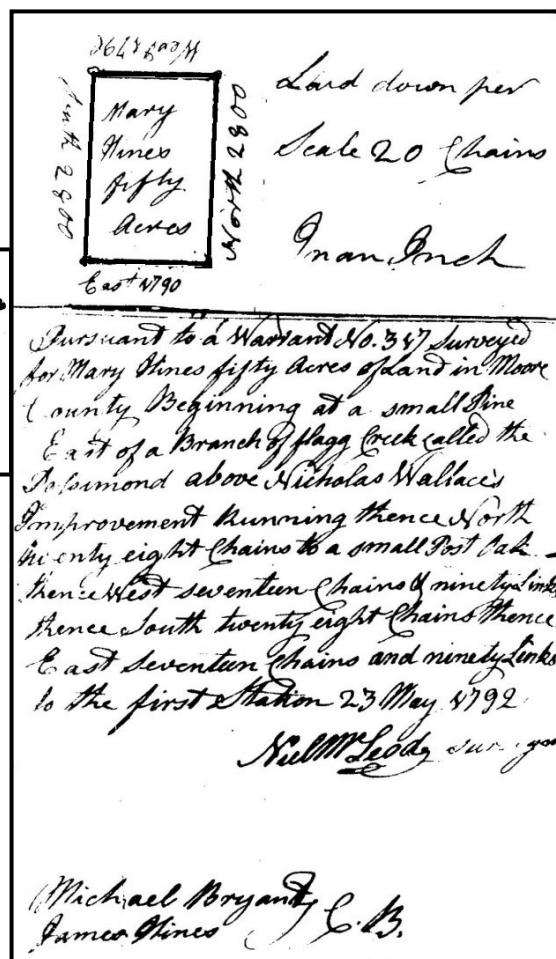 West 1790
South 2800
Mary
Hines
fifty
Acres
North 2800
East 1790
Laid down per
Scale 20 Chains
In an Inch
Pursuant to a Warrant No. 347 Surveyed
for Mary Hines fifty Acres of Land in Moore
County Beginning at a small Pine
East of a Branch of flagg Creek called the
above Nicholas Wallace's
Improvement Running thence North
twenty eight Chains to a small Post Oak
thence West seventeen Chains & ninety Links
thence South twenty eight Chains thence
East seventeen Chains and ninety Links
to the first Station 23 May 1792
Niel McLeod
Michael Bryant
James Hines } C. B.